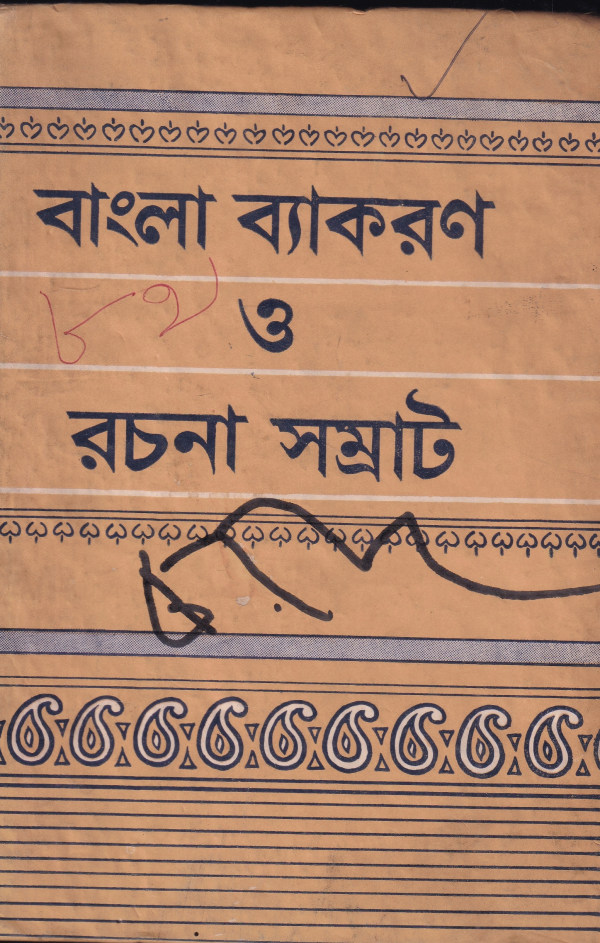 বাংলা ব্যাকরণ
ও
রচনা সম্রাট